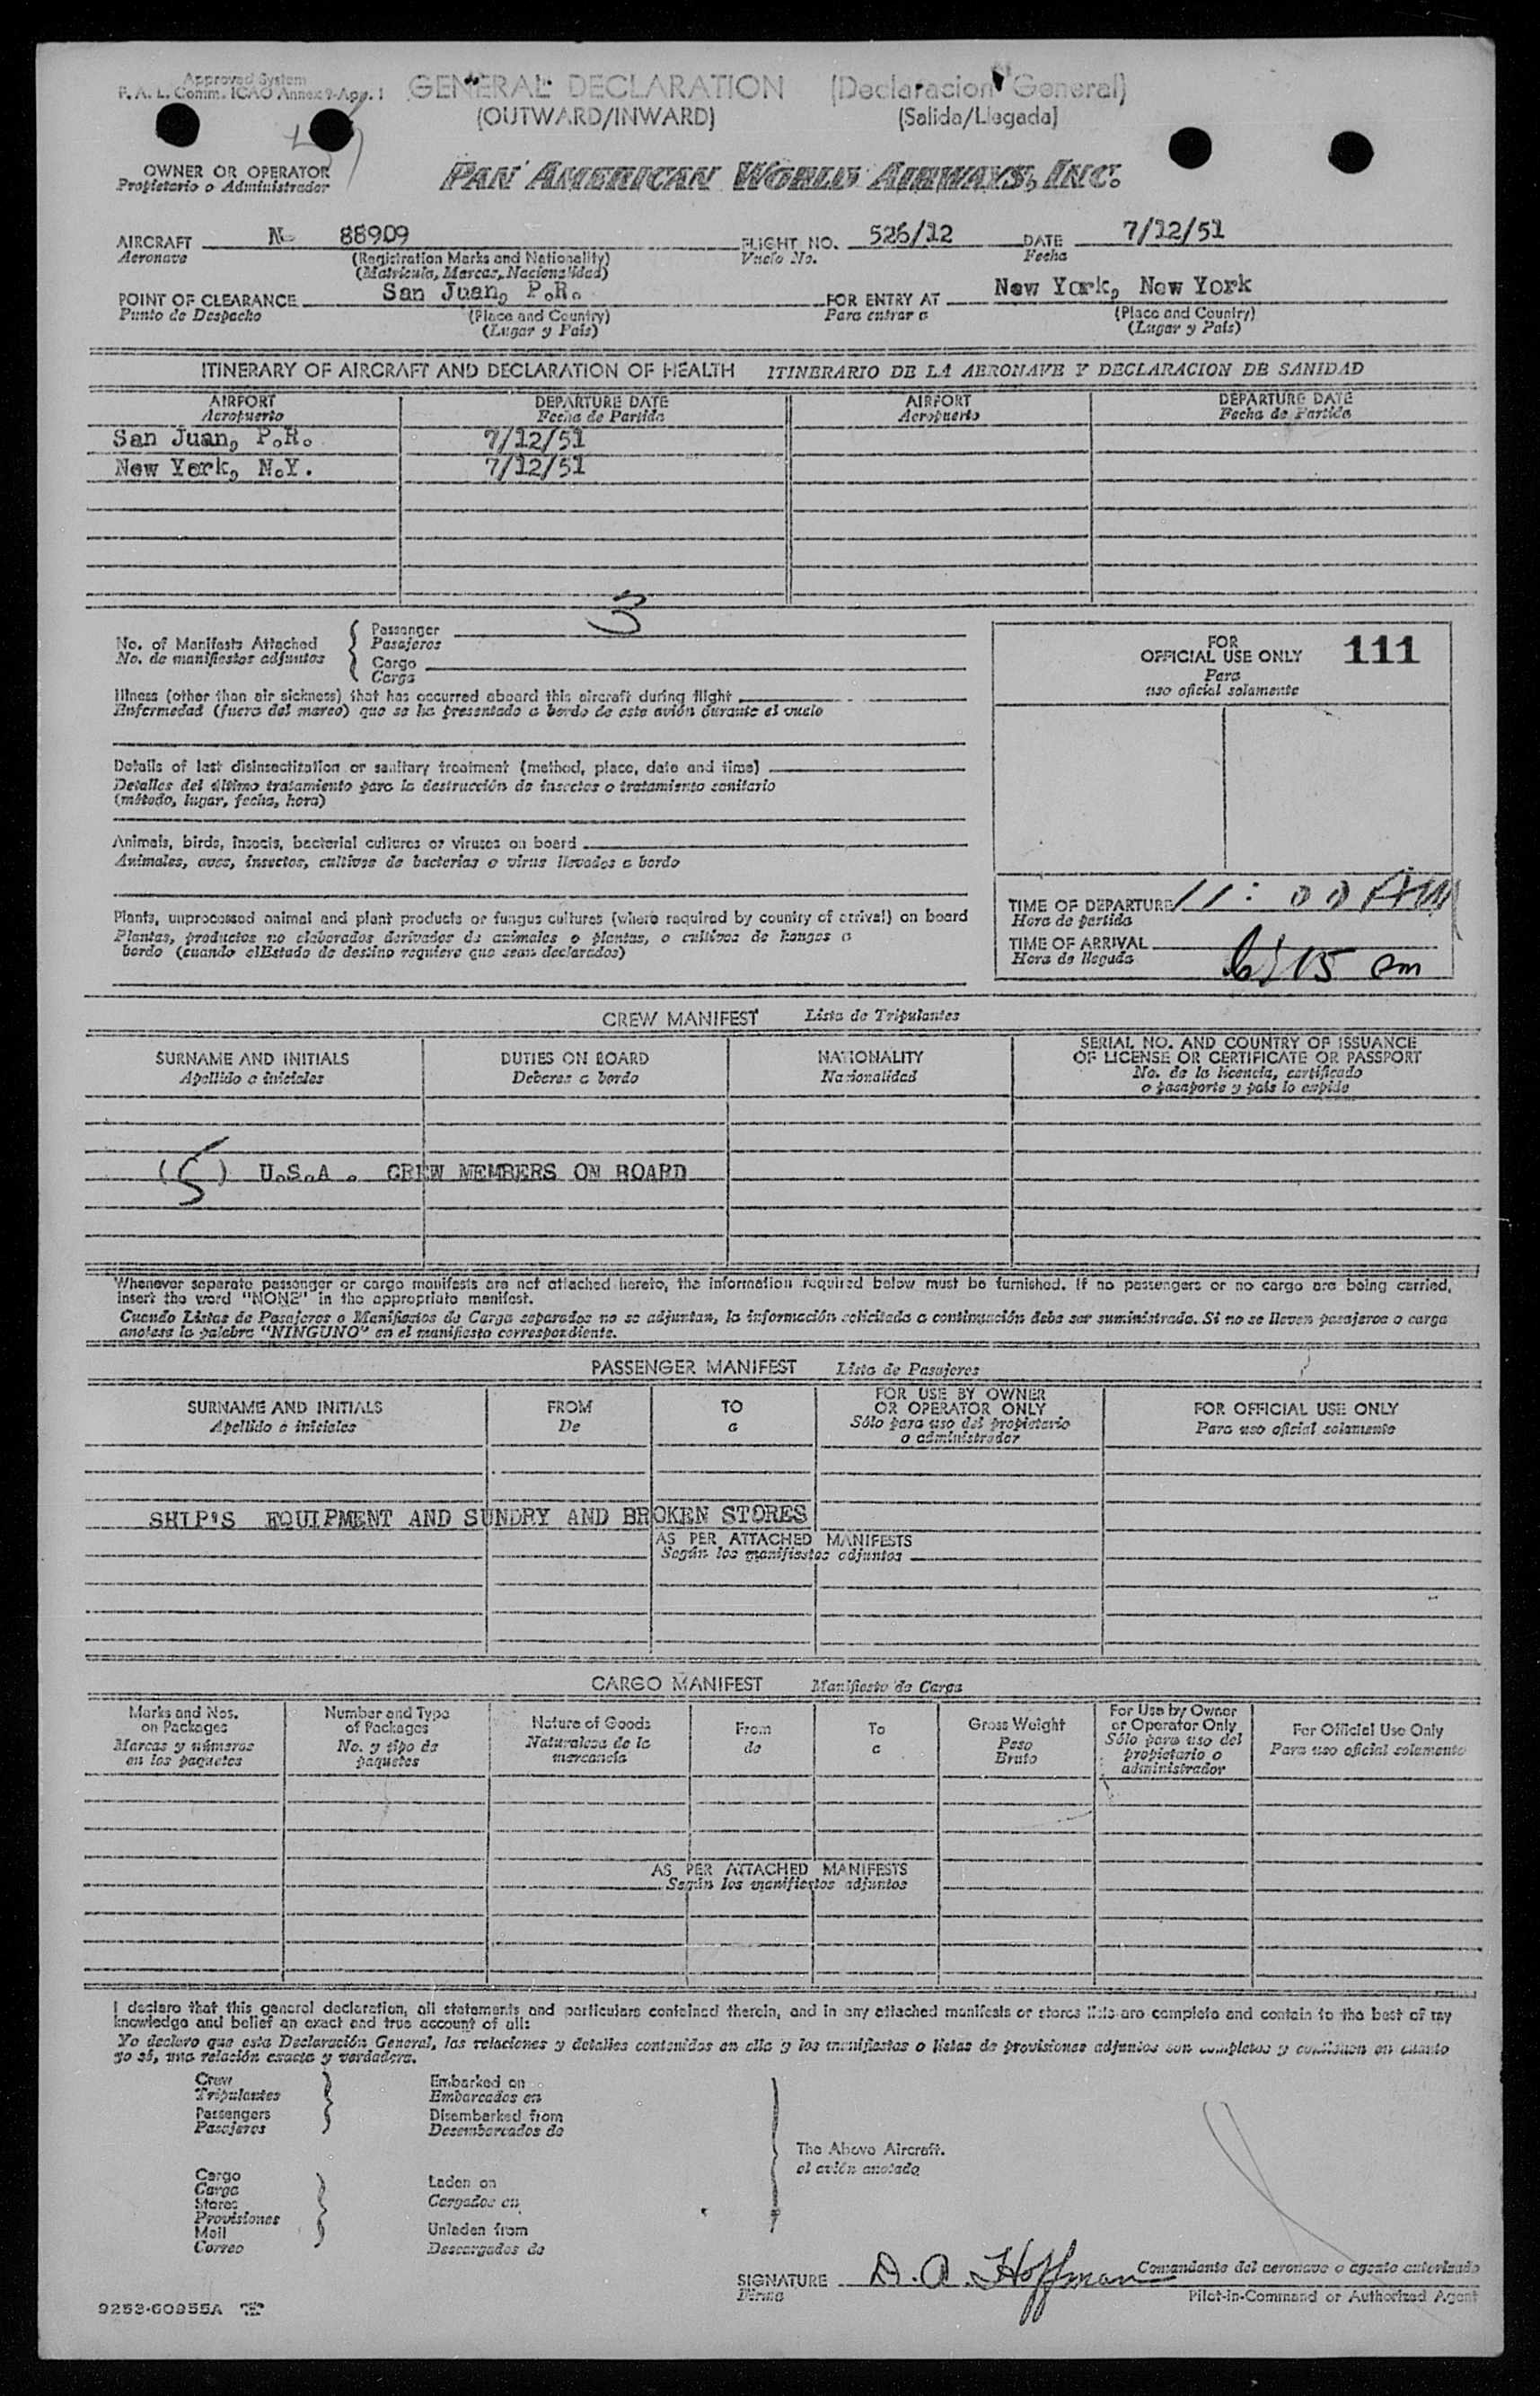 Approved System
F. A. L. Comm. ICAO Annex 9-App. 1
GENERAL DECLARATION (Declaracion General)
(OUTWARD/INWARD) (Salida/Llegada)
OWNER OR OPERATOR
Propietario o Administrador
PAN AMERICAN WORLD AIRWAYS, INC.
AIRCRAFT N 88909 FLIGHT NO. 526/12 DATE 7/12/51
Aeronave (Registration Marks and Nationality) Vuelo No. Fecha
(Matricula, Marcas, Nacionalidad)
POINT OF CLEARANCE San Juan, P.R. FOR ENTRY AT New York, New York
Punto de Despacho (Place and Country) Para entrar a (Place and Country)
(Lugar y Pais) (Lugar y Pais)
ITINERARY OF AIRCRAFT AND DECLARATION OF HEALTH ITINERARIO DE LA AERONAVE Y DECLARACION DE SANIDAD
AIRPORT DEPARTURE DATE AIRPORT DEPARTURE DATE
Aeropuerto Fecha de Partida Aeropuerto Fecha de Partida
San Juan, P.R. 7/12/51
New York, N.Y. 7/12/51
No. of Manifests Attached
No. de manifiestos adjuntos
Passenger 3
Pasajeros
Cargo
Carga
FOR
OFFICIAL USE ONLY 111
Para
uso oficial solamente
Illness (other than air sickness) that has occurred aboard this aircraft during flight
Enfermedad (fuera del mareo) que se ha presentado a bordo de este avión durante el vuelo
Details of last disinsectization or sanitary treatment (method, place, date and time)
Detalles del último tratamiento para la destrucción de insectos o tratamiento sanitario
(método, lugar, fecha, hora)
Animals, birds, insects, bacterial cultures or viruses on board
Animales, aves, insectos, cultivos de bacterias o virus llevados a bordo
Plants, unprocessed animal and plant products or fungus cultures (where required by country of arrival) on board
Plantas, productos no elaborados derivados de animales o plantas, o cultivos de hongos a
bordo (cuando elEstado de destino requiere que sean declarados)
TIME OF DEPARTURE 11:00 AM
Hora de partida
TIME OF ARRIVAL
Hora de llegada 6:15 am
CREW MANIFEST Lista de Tripulantes
SURNAME AND INITIALS DUTIES ON BOARD NATIONALITY SERIAL NO. AND COUNTRY OF ISSUANCE
OF LICENSE OR CERTIFICATE OR PASSPORT
Apellido e iniciales Deberes a bordo Nacionalidad No. de la licencia, certificado
o pasaporte y pais lo expide
(5) U.S.A. CREW MEMBERS ON BOARD
Whenever separate passenger or cargo manifests are not attached hereto, the information required below must be furnished. If no passengers or no cargo are being carried,
insert the word "NONE" in the appropriate manifest.
Cuando Listas de Pasajeros o Manifiestos de Carga separados no se adjuntan, la información solicitada a continuación debe ser suministrada. Si no se lleven pasajeros o carga
anotese la palabra "NINGUNO" en el manifiesto correspondiente.
PASSENGER MANIFEST Lista de Pasajeros
SURNAME AND INITIALS FROM TO FOR USE BY OWNER
OR OPERATOR ONLY FOR OFFICIAL USE ONLY
Apellido e iniciales De a Sólo para uso del propietario
o administrador Para uso oficial solamente
SHIP'S EQUIPMENT AND SUNDRY AND BROKEN STORES
AS PER ATTACHED MANIFESTS
Según los manifiestos adjuntos
CARGO MANIFEST Manifiesto de Carga
Marks and Nos.
on Packages
Marcas y números
en los paquetes
Number and Type
of Packages
No. y tipo de
paquetes
Nature of Goods
Naturaleza de la
mercancía
From
de
To
a
Gross Weight
Peso
Bruto
For Use by Owner
or Operator Only
Sólo para uso del
propietario o
administrador
For Official Use Only
Para uso oficial solamente
AS PER ATTACHED MANIFESTS
Según los manifiestos adjuntos
I declare that this general declaration, all statements and particulars contained therein, and in any attached manifests or stores lists are complete and contain to the best of my
knowledge and belief an exact and true account of all:
Yo declaro que esta Declaración General, las relaciones y detalles contenidos en ella y los manifiestos o listas de provisiones adjuntos son completos y contienen en cuanto
yo sé, una relación exacta y verdadera.
Crew
Tripulantes
Passengers
Pasajeros
Embarked on
Embarcados en
Disembarked from
Desembarcados de
Cargo
Carga
Stores
Provisiones
Mail
Correo
Laden on
Cargados en
Unladen from
Descargados de
The Above Aircraft.
el avión anotado
SIGNATURE D. A. Hoffman Comandante del aeronave o agente autorizado
Firma Pilot-in-Command or Authorized Agent
9253-60955A